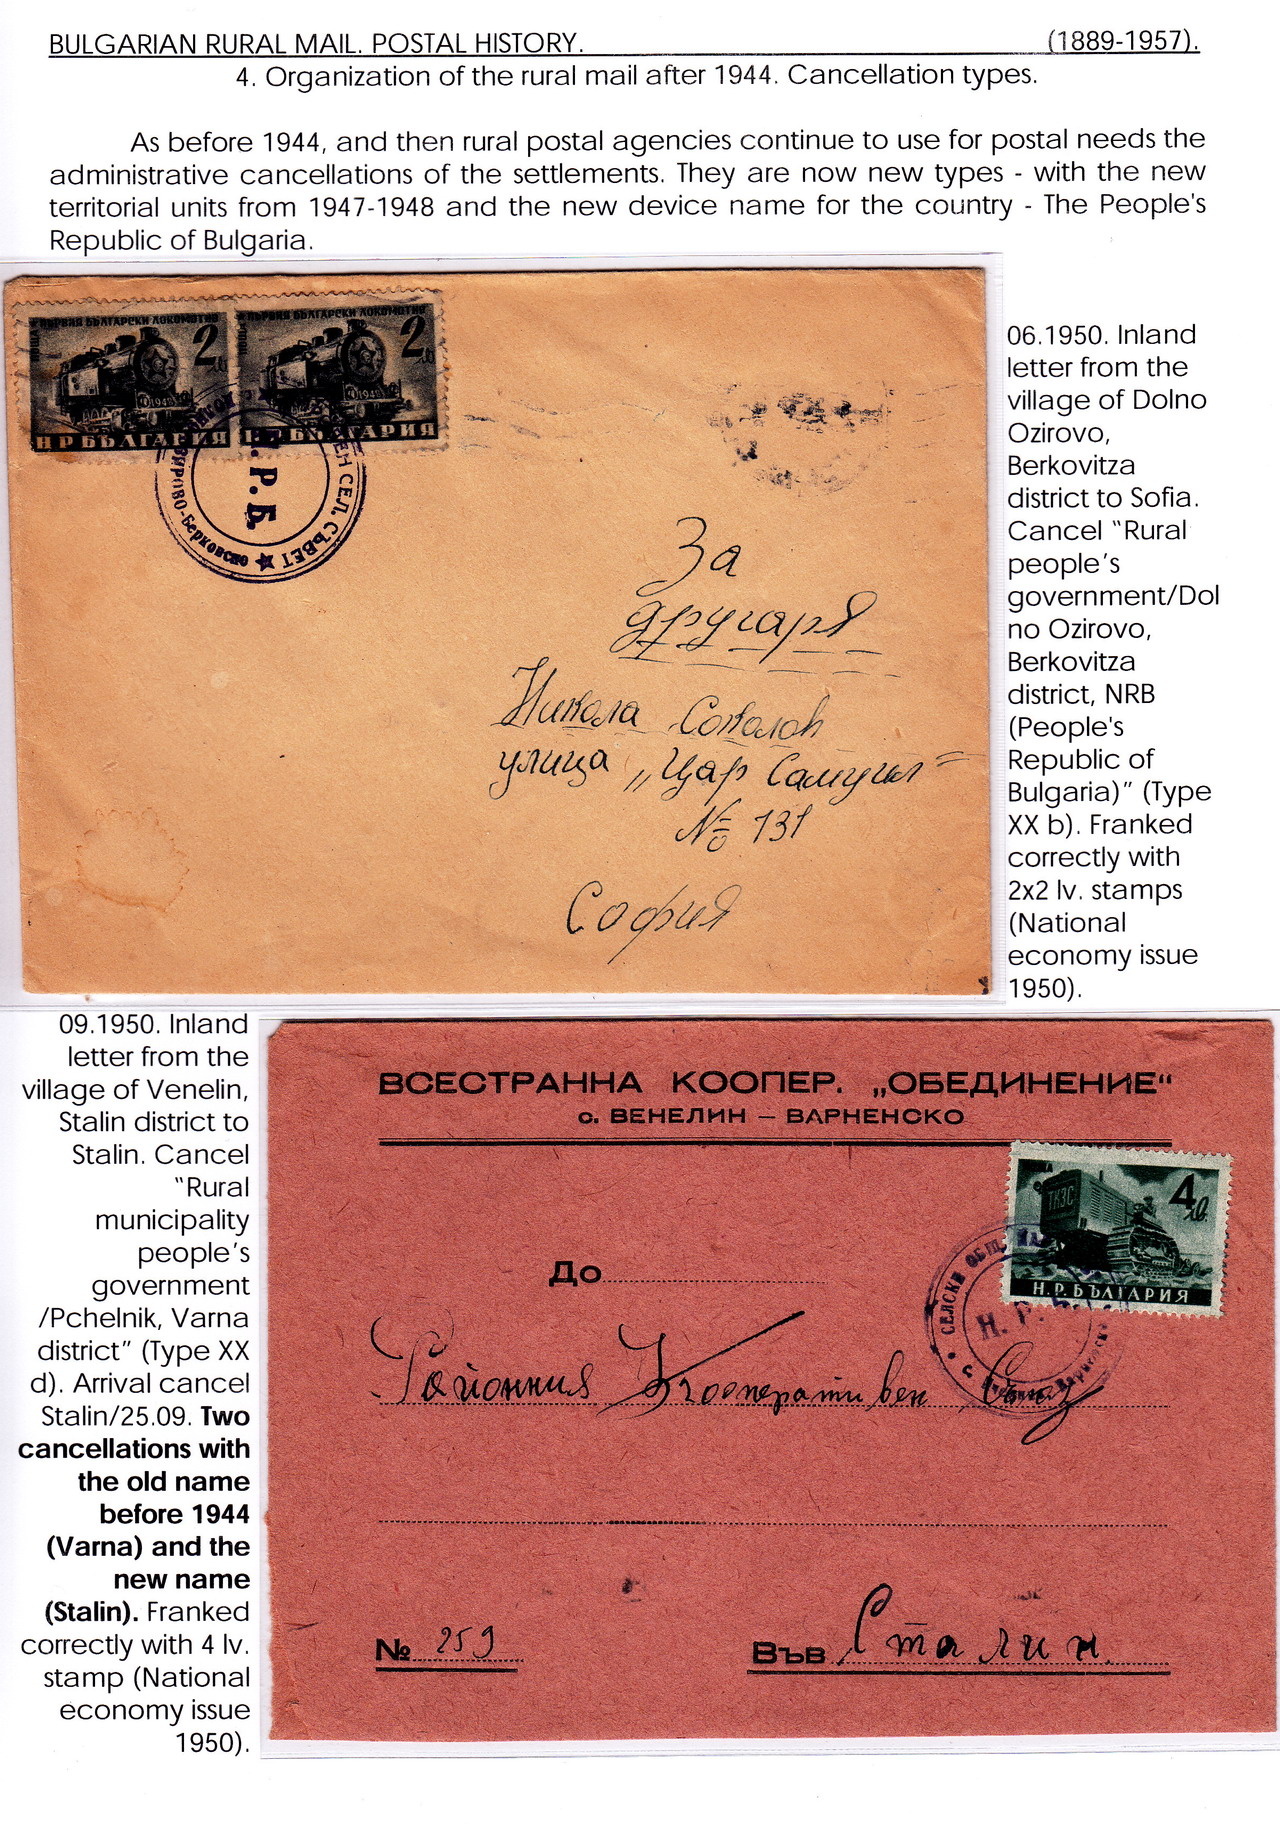 BULGARIAN RURAL MAIL. POSTAL HISTORY. (1889-1957).
4. Organization of the rural mail after 1944. Cancellation types.
As before 1944, and then rural postal agencies continue to use for postal needs the
administrative cancellations of the settlements. They are now new types - with the new
territorial units from 1947-1948 and the new device name for the country - The People's
Republic of Bulgaria.
ПЪРВИЯ БЪЛГАРСКИ ЛОКОМОТИВ
2 лв
Н Р БЪЛГАРИЯ
ПЪРВИЯ БЪЛГАРСКИ ЛОКОМОТИВ
2 лв
Н Р БЪЛГАРИЯ
СЕЛ. СЪВЕТ
Берковско
Н.Р.Б.
За
другаря
Никола Соколов
улица „Цар Самуил"
№ 131
София
06.1950. Inland
letter from the
village of Dolno
Ozirovo,
Berkovitza
district to Sofia.
Cancel “Rural
people’s
government/Dol
no Ozirovo,
Berkovitza
district, NRB
(People's
Republic of
Bulgaria)” (Type
XX b). Franked
correctly with
2x2 lv. stamps
(National
economy issue
1950).
09.1950. Inland
letter from the
village of Venelin,
Stalin district to
Stalin. Cancel
“Rural
municipality
people’s
government
/Pchelnik, Varna
district” (Type XX
d). Arrival cancel
Stalin/25.09. Two
cancellations with
the old name
before 1944
(Varna) and the
new name
(Stalin). Franked
correctly with 4 lv.
stamp (National
economy issue
1950).
ВСЕСТРАННА КООПЕР. „ОБЕДИНЕНИЕ“
с. ВЕНЕЛИН – ВАРНЕНСКО
ТКЗС
4 лв.
Н.Р.БЪЛГАРИЯ
СЕЛСКИ ОБЩ.
Н. Р. Б.
До
Районния Кооперативен Съюз
№ 259
Във Сталин.